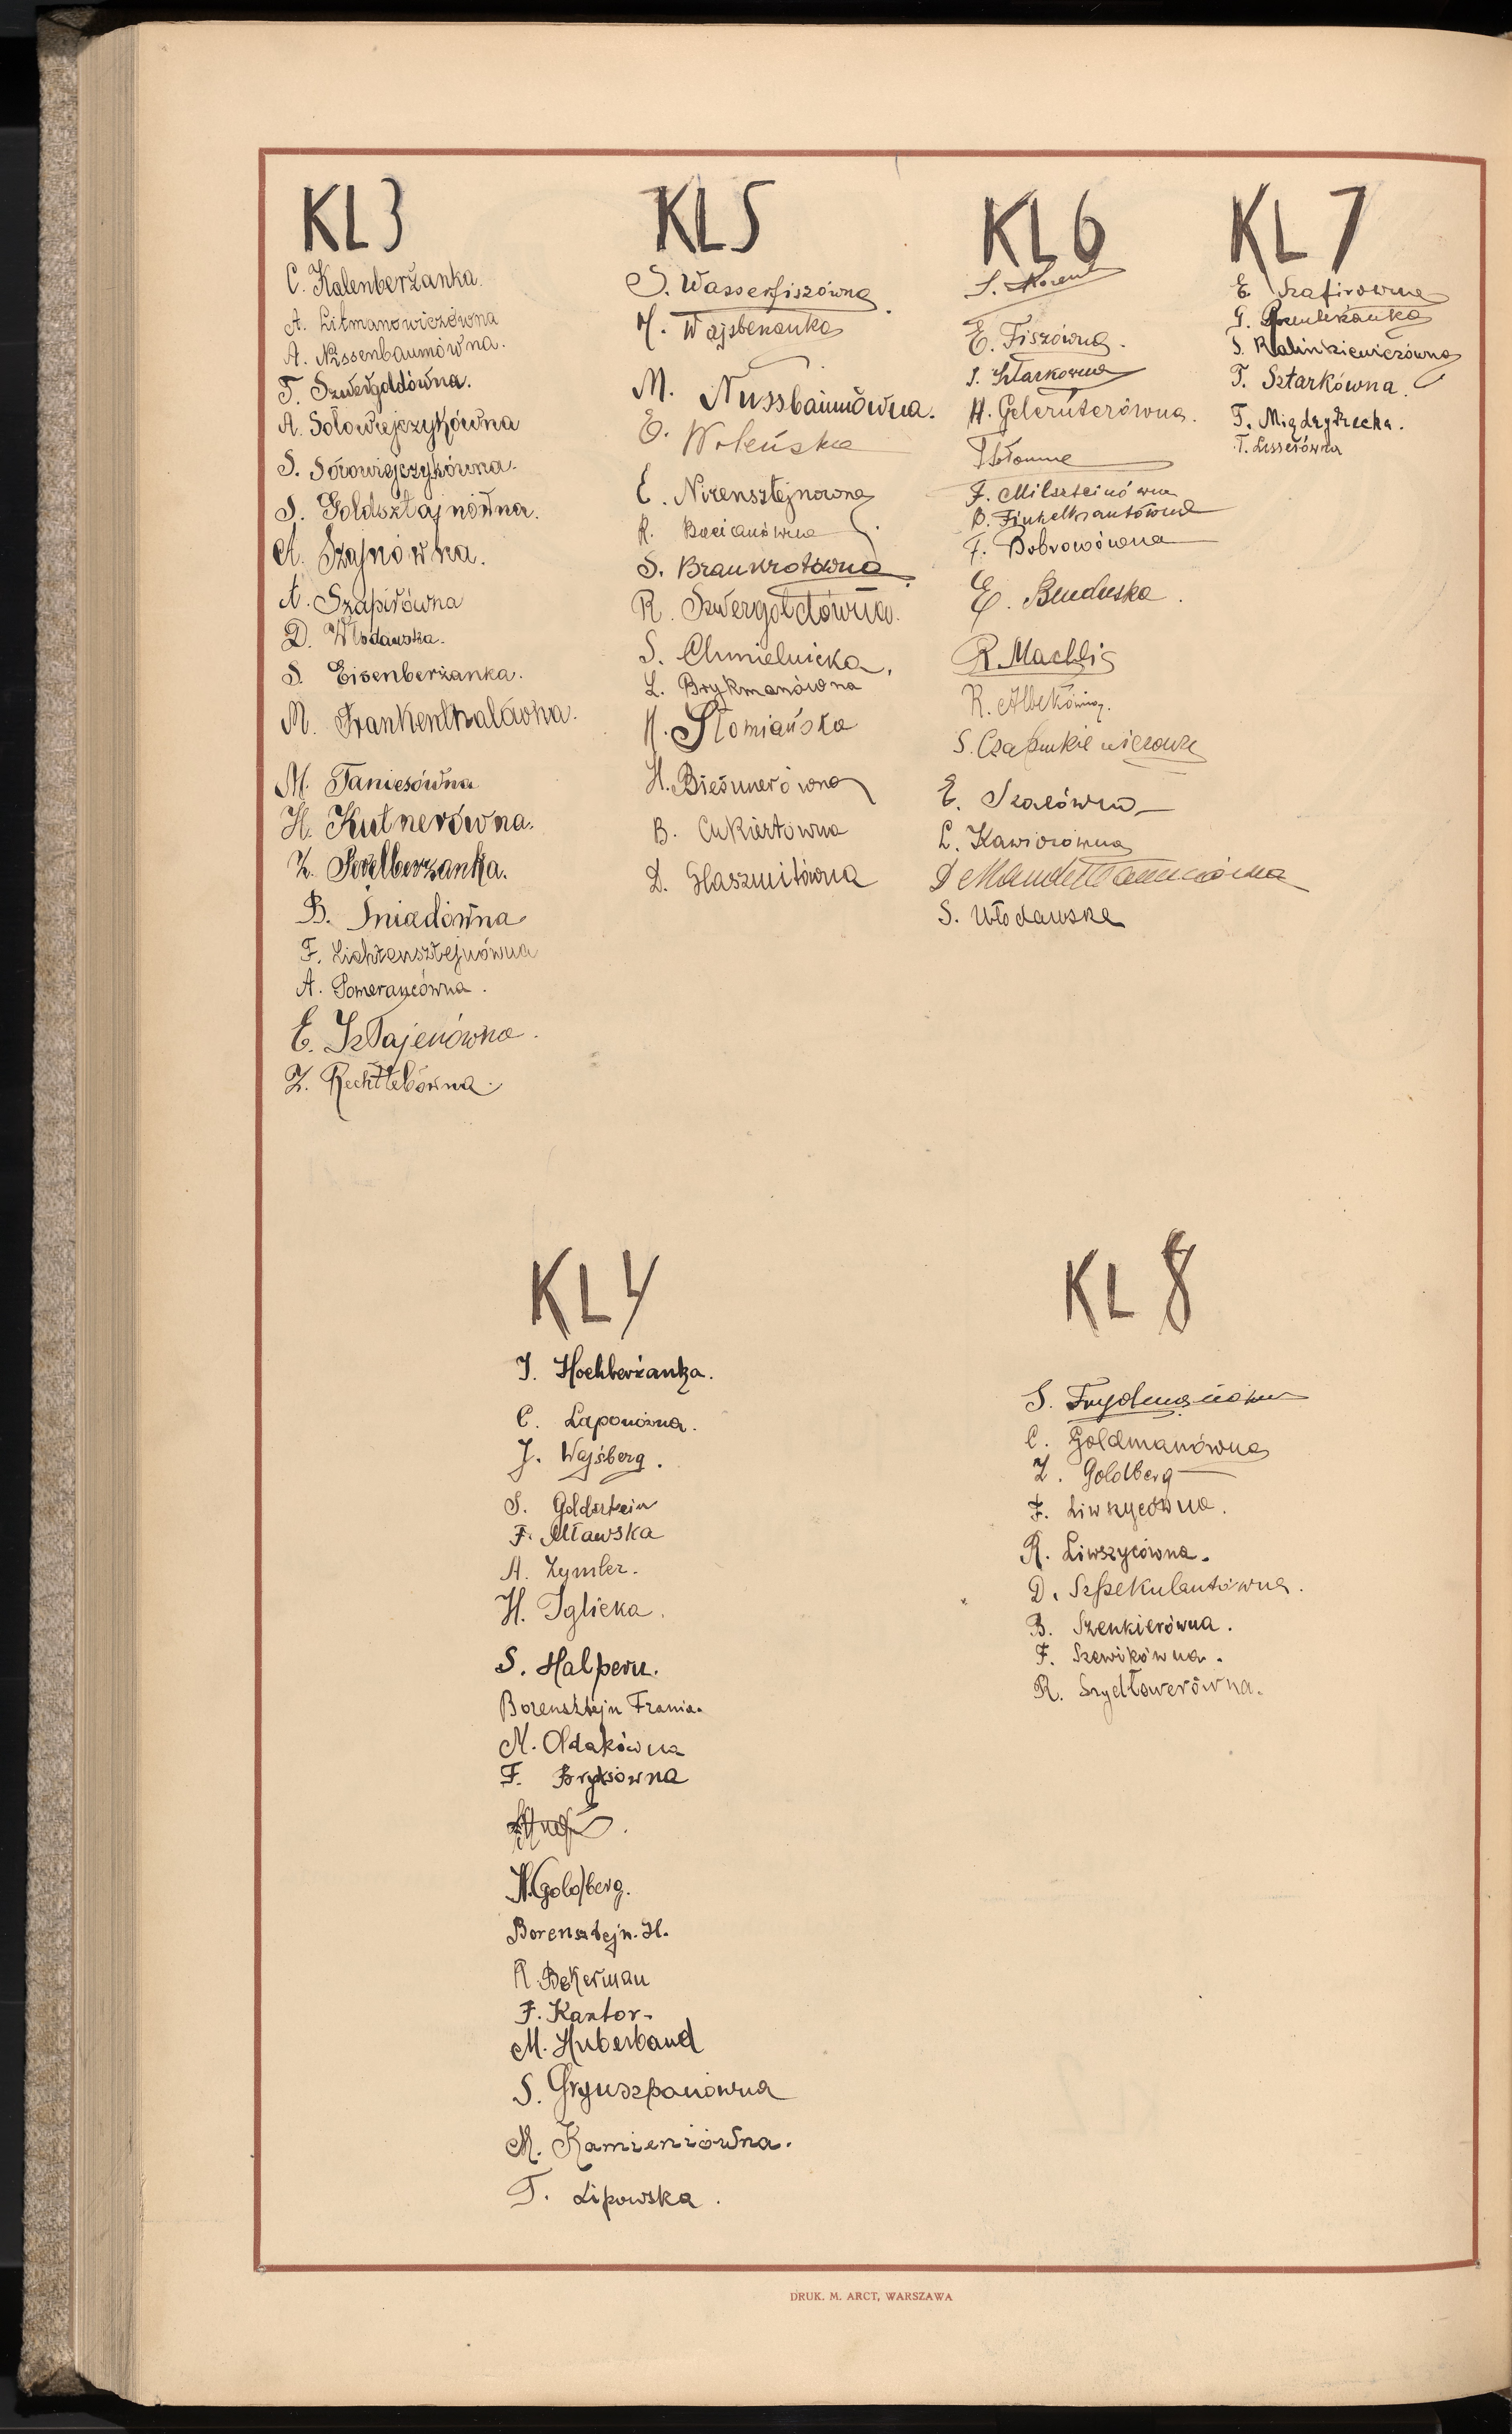 KL 3
C. Kalenberżanka.
A. Litmanowiczówna
A. Nissenbaumówna.
T. Szwergoldówna.
A. Sołowiejczykówna
S. Sołowiejczykówna.
S. Goldsztajnówna.
A. Szajnówna.
A. Szapirówna
D. Włodawska.
S. Eisenberżanka.
M. Frankenthalówna.
M. Taniesówna
H. Kutnerówna.
Z. Perelberżanka.
B. Śniadówna
F. Lichtensztejnówna
A. Pomerancówna.
E. Sztajenówna.
Z. Rechtlebówna.
KL 5
S. Wasserfiszówna
M. Wajsbekanka
M. Nussbaumówna.
E. Woleńska
E. Nirensztejnowna
R. Bocianówna
S. Braunrotówna
R. Szwergoldówna.
S. Chmielnicka.
L. Brykmanówna
H. Słomiańska
H. Bieżunerówna
B. Cukiertówna
D. Haszmitówna
KL 6
S.
E. Fiszówna.
S. Sztarkowna
H. Gelernterówna.
F. Milszteinówna
B. Finkelkrautówna
F. Bobrowówna
E. Buduska.
R. Machlis
R. Albekówna.
S.
E. Szacówna
L. Kawiorówna
D
S. Włodawska
KL 7
E. Szafirowna
G.
S. Kalinkiewiczówna
T. Sztarkówna.
T. Międzyrzecka.
T. Lesserówna
KL 4
I. Hochberżanka.
C. Laponówna.
J. Wajsberg.
S. Goldsztein
F. Mławska
A. Zymler.
H. Iglicka.
S. Halpern.
Borensztejn Frania.
N. Ołdakówna
F. Bryksówna
N. Goldberg.
Borensztejn. H.
R. Bekerman
F. Kantor.
M. Huberband
S. Grynszpanówna
M. Kamieniówna.
T. Lipowska.
KL 8
S. Frydmanówna
C. Goldmanówna
Z. Goldberg
F. Liwszycówna.
R. Liwszycówna.
D. Szpekulantówna.
B. Szenkierówna.
F. Szewikówna.
R. Szydłowerówna.
DRUK. M. ARCT, WARSZAWA